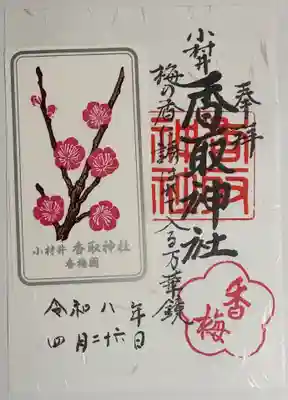 奉拝
小村井
香取神社
香取
神社
梅の香に誘はれ入る万華鏡
香梅
小村井 香取神社
香梅園
令和八年
四月二十六日